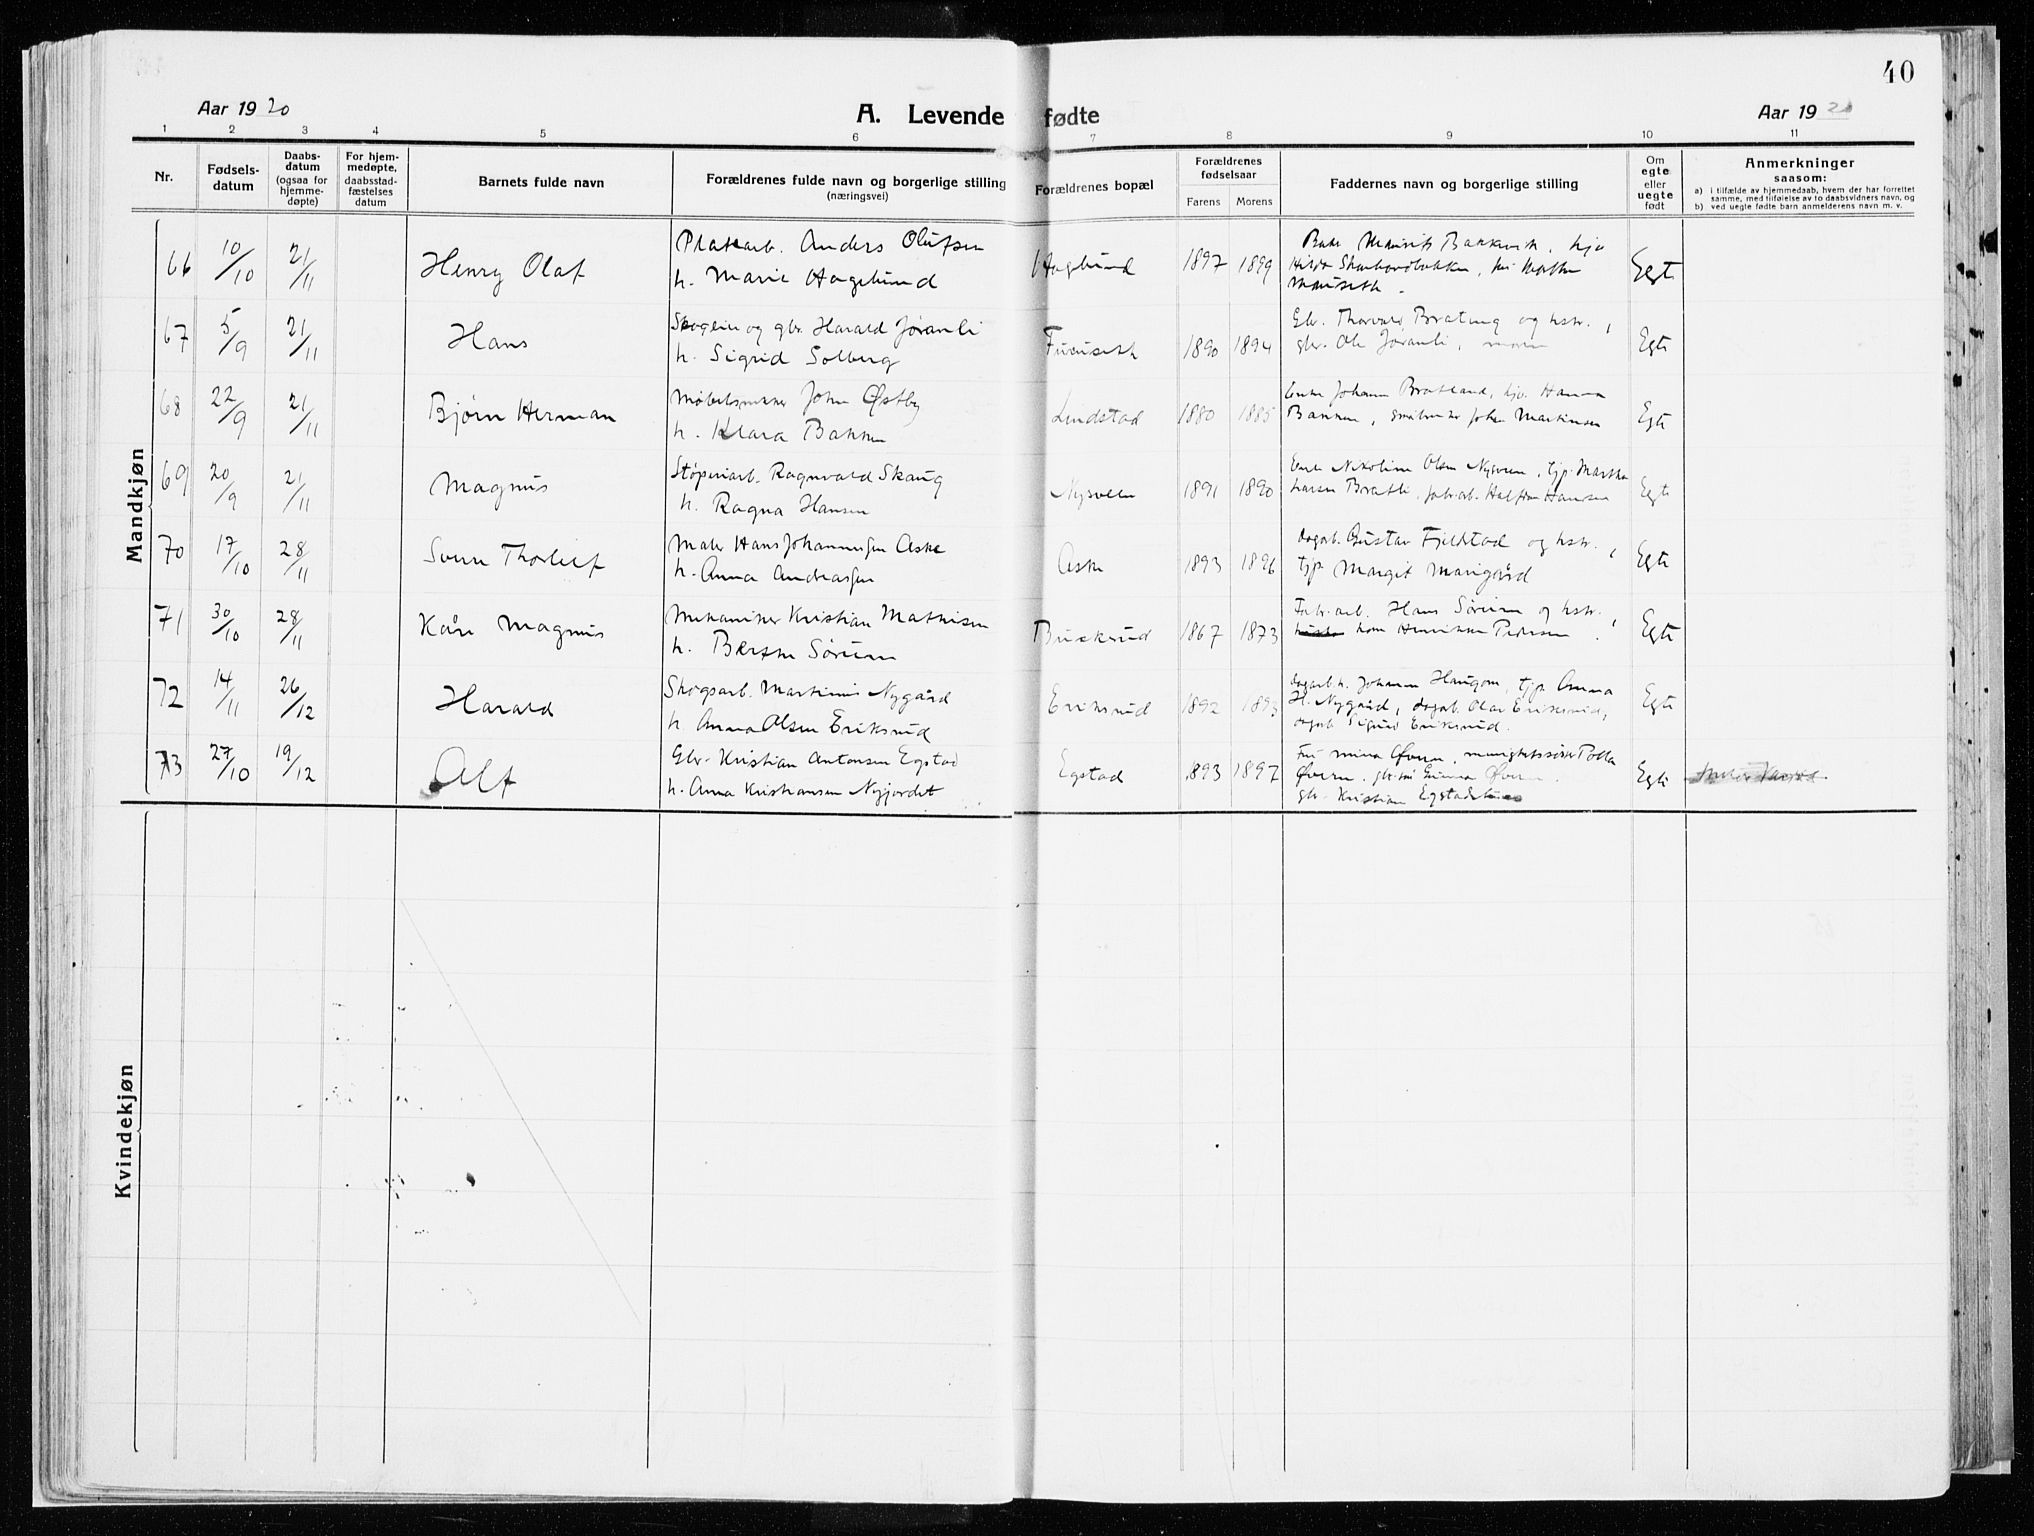 40
Aar 1920
A. Levende fødte
Aar 1920
1 2 3 4 5 6 7 8 9 10 11
Nr.
Fødsels-
datum
Daabs-
datum
(ogsaa for
hjemme-
døpte)
For hjem-
medøpte,
daabsstad-
fæstelses
datum
Barnets fulde navn
Forældrenes fulde navn og borgerlige stilling
(næringsvei)
Forældrenes bopæl
Forældrenes
fødselsaar
Farens Morens
Faddernes navn og borgerlige stilling
Om
egte
eller
uegte
født
Anmerkninger
saasom:
a) i tilfælde av hjemmedaab, hvem der har forrettet
samme, med tilføielse av to daabsvidners navn, og
b) ved uegte fødte barn anmelderens navn m. v.
Mandkjøn
66 10/10 21/11 Henry Olaf
Anders Olufsen
h. Marie Hagelund
Haglund 1897 1899
Egte
67 5/9 21/11 Hans
Skogeier og gbr. Harald Jøranli
h. Sigrid Solberg
Furuseth 1890 1894
Gbr. Thorvald Bratung og hstr.,
gbr. Ole Jøranli, moren
Egte
68 22/9 21/11 Bjørn Herman
John Østby
h. Klara Bakken
Lindstad 1880 1885
Enke Johanne Bratland, hjv. Hanna
Bakken, småbruker Johan Martinsen
Egte
69 20/9 21/11 Magnus
Støperiarb. Ragnvald Skaug
h. Ragna Hansen
Nysveen 1891 1890
Enke Nikoline Olsen Nysveen, tjp. Martha
Larsen Bratli, fabr.arb. Halfdan Hansen
Egte
70 17/10 28/11 Svein Thorleif
Maler Hans Johannessen Aske
h. Anna Andreassen
Aske 1893 1896
dagarb. Gustav Fjeldstad og hstr.,
tjp. Margit Marigård
Egte
71 30/10 28/11 Kåre Magnus
Mekaniker Kristian Mathisen
h. Berthe Sørum
Buskerud 1867 1873
Fabr.arb. Hans Sørum og hstr.,
Pedersen.
Egte
72 14/11 26/12 Harald
Skogsarb. Martinius Nygård
h. Anna Olsen Eriksrud
Eriksrud 1892 1893
dagarb.h. Johanne Haugom, tjp. Anna
H. Nygård, dagarb. Olav Eriksrud,
dagarb. Sigurd Eriksrud.
Egte
73 27/10 19/12 Alf
Gbr. Kristian Antonsen Egstad
h. Anna Kristiansen Nyjordet
Egstad 1893 1897
Fru Mina Øvern, menighetssøster
Øvern, Emma Øvern.
gbr. Kristian Egstad
Egte
Kvindekjøn